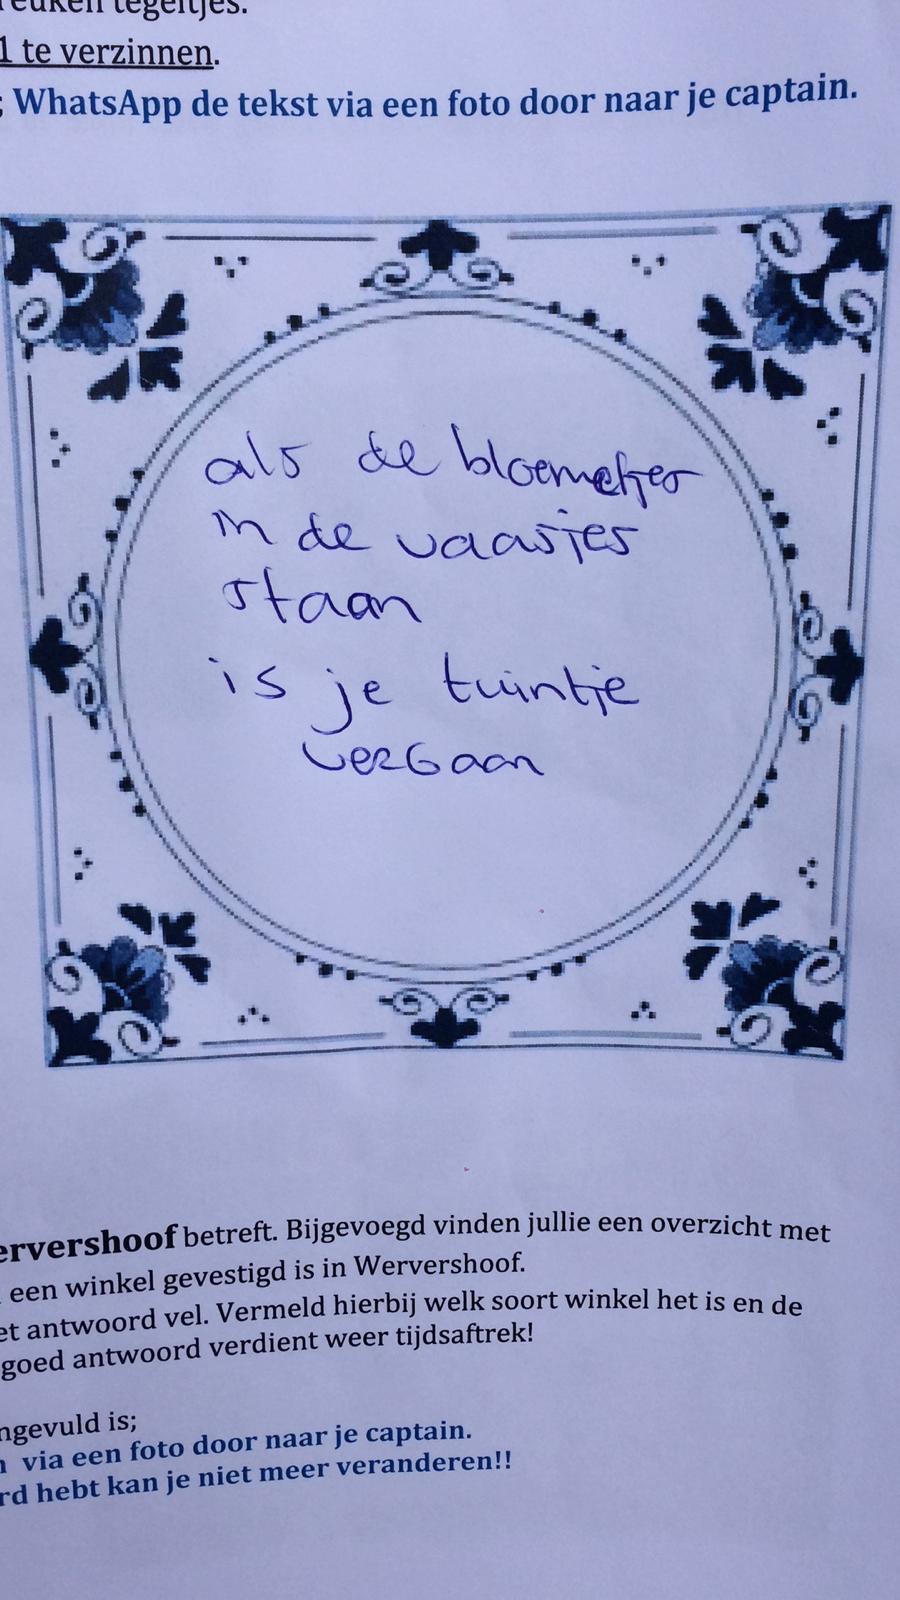 reuken tegeltjes.
1 te verzinnen.
; WhatsApp de tekst via een foto door naar je captain.
als de bloemetjes
in de vaasjes
staan
is je tuintje
verGaan
ervershoof betreft. Bijgevoegd vinden jullie een overzicht met
een winkel gevestigd is in Wervershoof.
et antwoord vel. Vermeld hierbij welk soort winkel het is en de
goed antwoord verdient weer tijdsaftrek!
ngevuld is;
n via een foto door naar je captain.
rd hebt kan je niet meer veranderen!!